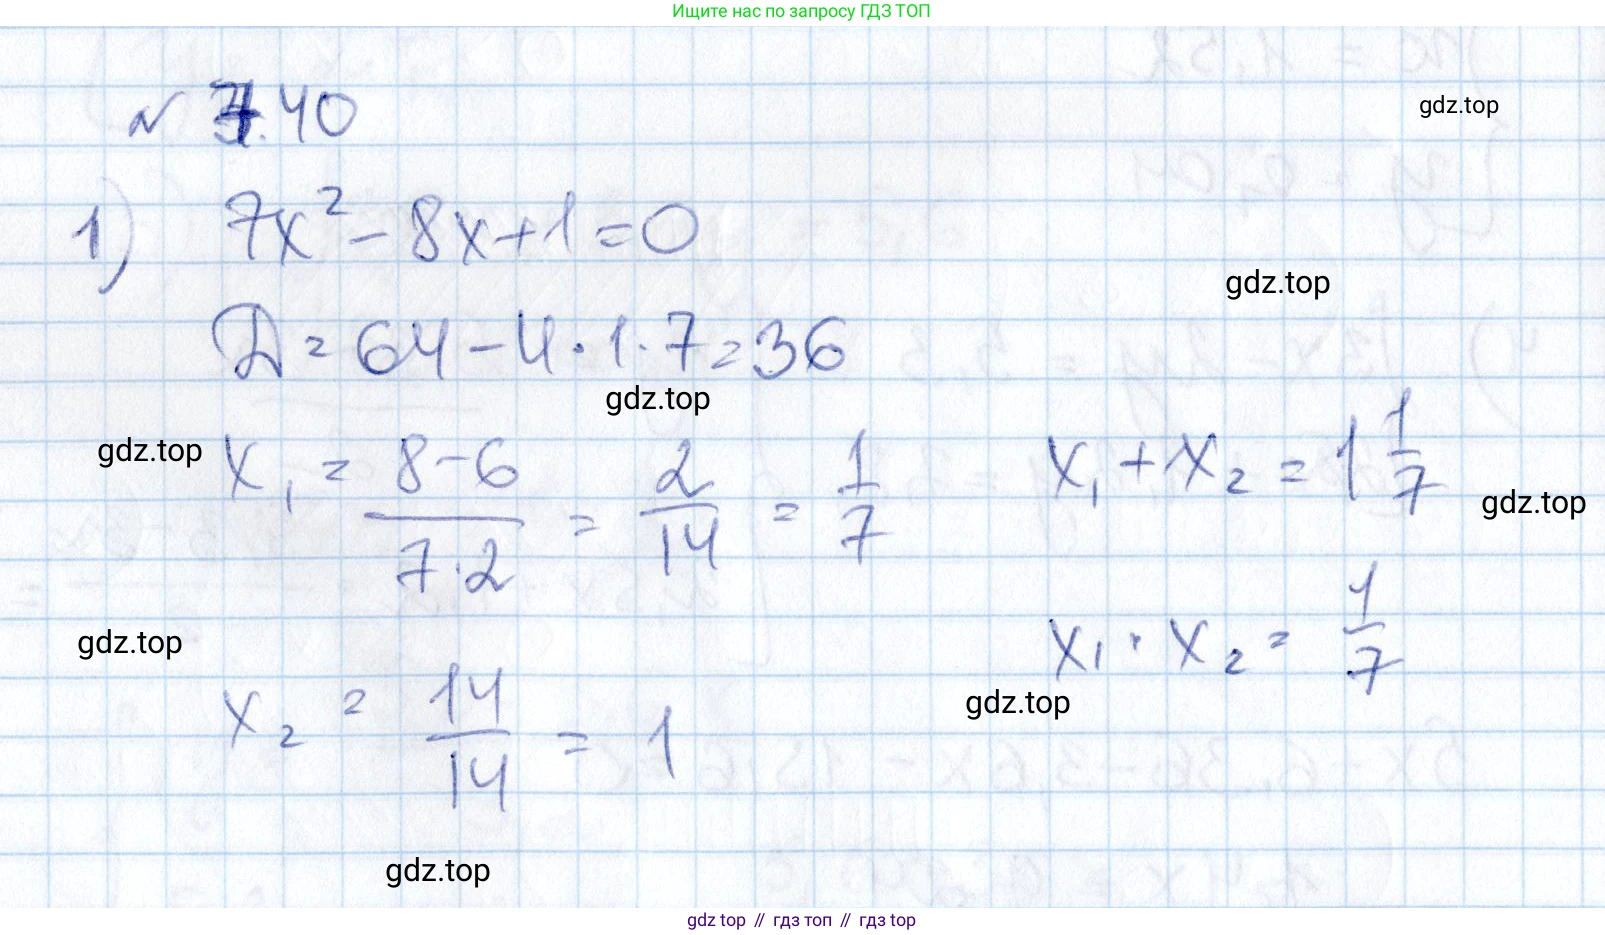 Ищите нас по запросу ГДЗ ТОП
№ 7.40
gdz.top
1) 7x² - 8x + 1 = 0
gdz.top
Д = 64 - 4 · 1 · 7 = 36
gdz.top
gdz.top
x₁ = (8-6)/(7·2) = 2/14 = 1/7
x₁ + x₂ = 1 1/7
gdz.top
gdz.top
x₁ · x₂ = 1/7
gdz.top
x₂ = 14/14 = 1
gdz.top
gdz top // гдз топ // гдз top